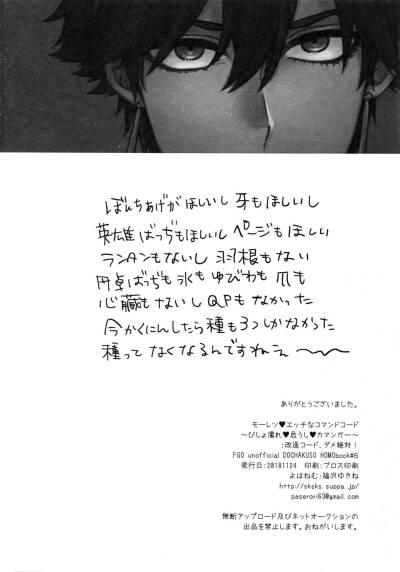 ぼんちあげがほしいし 牙もほしいし
英雄ばっぢもほしいし ページもほしい
ランタンもないし 羽根もない
円卓ばっぢも 氷も ゆびわも 爪も
心臓もないし QPもなかった
今かくにんしたら種も3つしかなかった
種ってなくなるんですねぇ〜〜
ありがとうございました。
モーレツ♥エッチなコマンドコード
〜びしょ濡れ♥危うし♥カマンガー〜
:改造コード、ダメ絶対!
FGO unofficial DOCHAKUSO HOMObook#6
発行日:20181124 印刷:プロス印刷
よはねむ:福沢ゆきね
http://sksks.suppa.jp/
paserori63@gmail.com
無断アップロード及びネットオークションの
出品を禁止します。おねがいします。